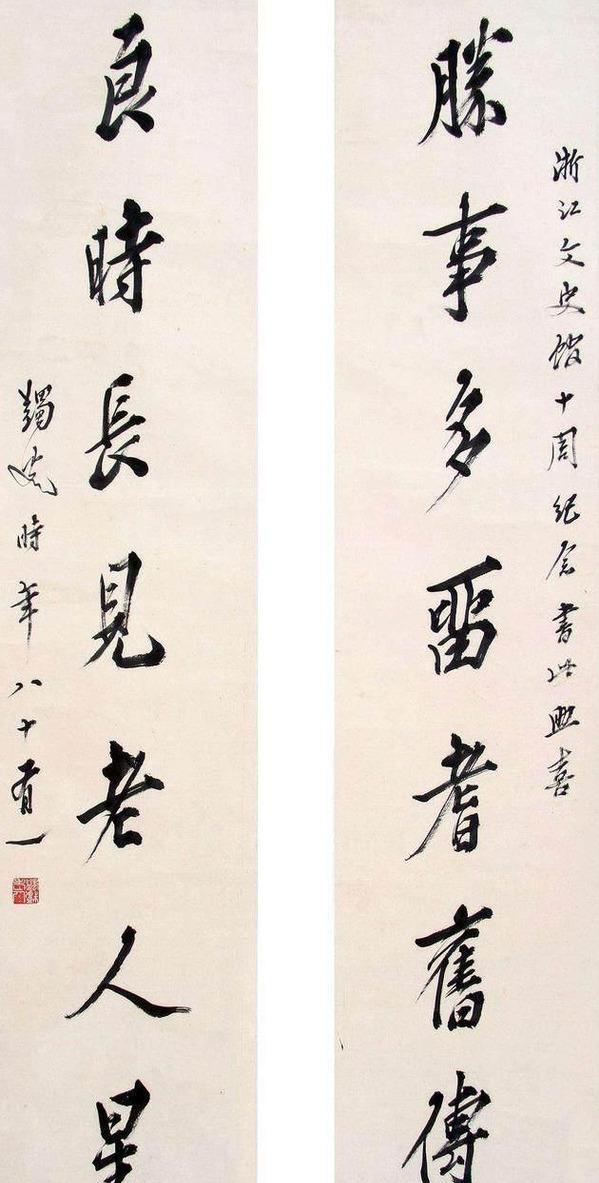 浙江文史館十周紀念書此喜
勝事多畱耆舊傳
良時長見老人星
蠲叟時年八十有一